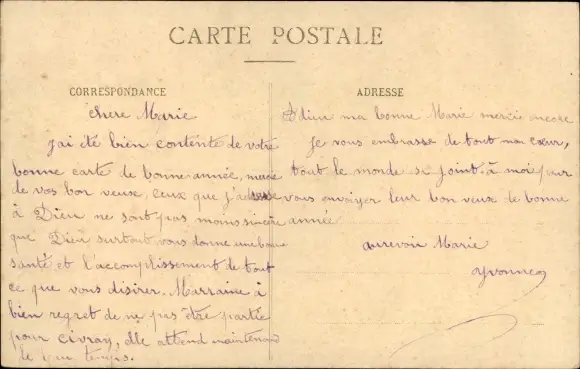 CARTE POSTALE
CORRESPONDANCE
chere Marie
j'ai été bien contente de votre
bonne carte de bonne année, merci
de vos bon veux, ceux que j'adresse
à Dieu ne sont pas moins sincère
que Dieu surtout vous donne une bonne
santé et l'accomplissement de tout
ce que vous disirer. Marraine à
bien regret de ne pas être partie
pour civray, elle attend maintenant
le temps.
ADRESSE
Adieu ma bonne Marie mercie encore
Je vous embrasse de tout mon cœur,
tout le monde se joint à moi pour
vous envoyer leur bon veux de bonne
année
aurevoir Marie
Yvonne